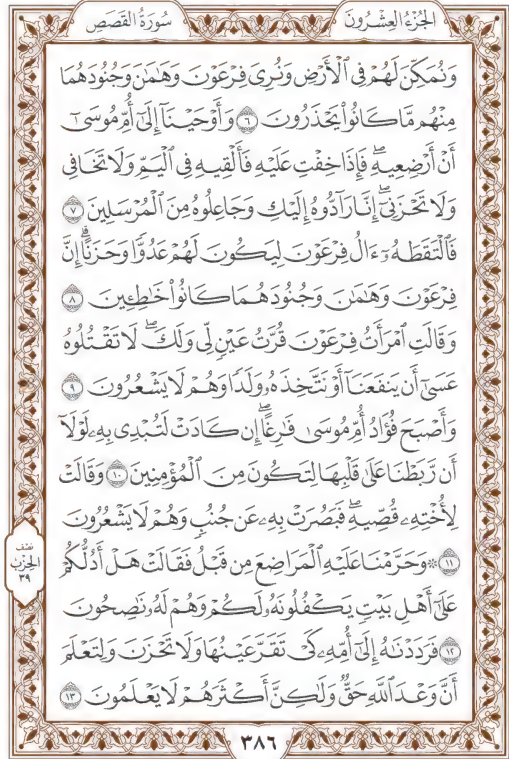 الجُزْءُ العِشْرُونَ
سُورَةُ القَصَصِ
وَنُمَكِّنَ لَهُمْ فِي الْأَرْضِ وَنُرِيَ فِرْعَوْنَ وَهَٰمَٰنَ وَجُنُودَهُمَا
مِنْهُم مَّا كَانُوا۟ يَحْذَرُونَ ٦ وَأَوْحَيْنَآ إِلَىٰٓ أُمِّ مُوسَىٰٓ
أَنْ أَرْضِعِيهِ ۖ فَإِذَا خِفْتِ عَلَيْهِ فَأَلْقِيهِ فِي الْيَمِّ وَلَا تَخَافِي
وَلَا تَحْزَنِيٓ ۖ إِنَّا رَآدُّوهُ إِلَيْكِ وَجَاعِلُوهُ مِنَ الْمُرْسَلِينَ ٧
فَالْتَقَطَهُۥٓ ءَالُ فِرْعَوْنَ لِيَكُونَ لَهُمْ عَدُوًّا وَحَزَنًا ۗ إِنَّ
فِرْعَوْنَ وَهَٰمَٰنَ وَجُنُودَهُمَا كَانُوا۟ خَٰطِـِٔينَ ٨
وَقَالَتِ امْرَأَتُ فِرْعَوْنَ قُرَّتُ عَيْنٍ لِّي وَلَكَ ۖ لَا تَقْتُلُوهُ
عَسَىٰٓ أَن يَنفَعَنَآ أَوْ نَتَّخِذَهُۥ وَلَدًا وَهُمْ لَا يَشْعُرُونَ ٩
وَأَصْبَحَ فُؤَادُ أُمِّ مُوسَىٰ فَٰرِغًا ۖ إِن كَادَتْ لَتُبْدِي بِهِۦ لَوْلَآ
أَن رَّبَطْنَا عَلَىٰ قَلْبِهَا لِتَكُونَ مِنَ الْمُؤْمِنِينَ ١٠ وَقَالَتْ
لِأُخْتِهِۦ قُصِّيهِ ۖ فَبَصُرَتْ بِهِۦ عَن جُنُبٍ وَهُمْ لَا يَشْعُرُونَ
١١ ۞ وَحَرَّمْنَا عَلَيْهِ الْمَرَاضِعَ مِن قَبْلُ فَقَالَتْ هَلْ أَدُلُّكُمْ
عَلَىٰٓ أَهْلِ بَيْتٍ يَكْفُلُونَهُۥ لَكُمْ وَهُمْ لَهُۥ نَٰصِحُونَ
١٢ فَرَدَدْنَٰهُ إِلَىٰٓ أُمِّهِۦ كَيْ تَقَرَّ عَيْنُهَا وَلَا تَحْزَنَ وَلِتَعْلَمَ
أَنَّ وَعْدَ اللَّهِ حَقٌّ وَلَٰكِنَّ أَكْثَرَهُمْ لَا يَعْلَمُونَ ١٣
نصف
الحزب
٣٩
٣٨٦